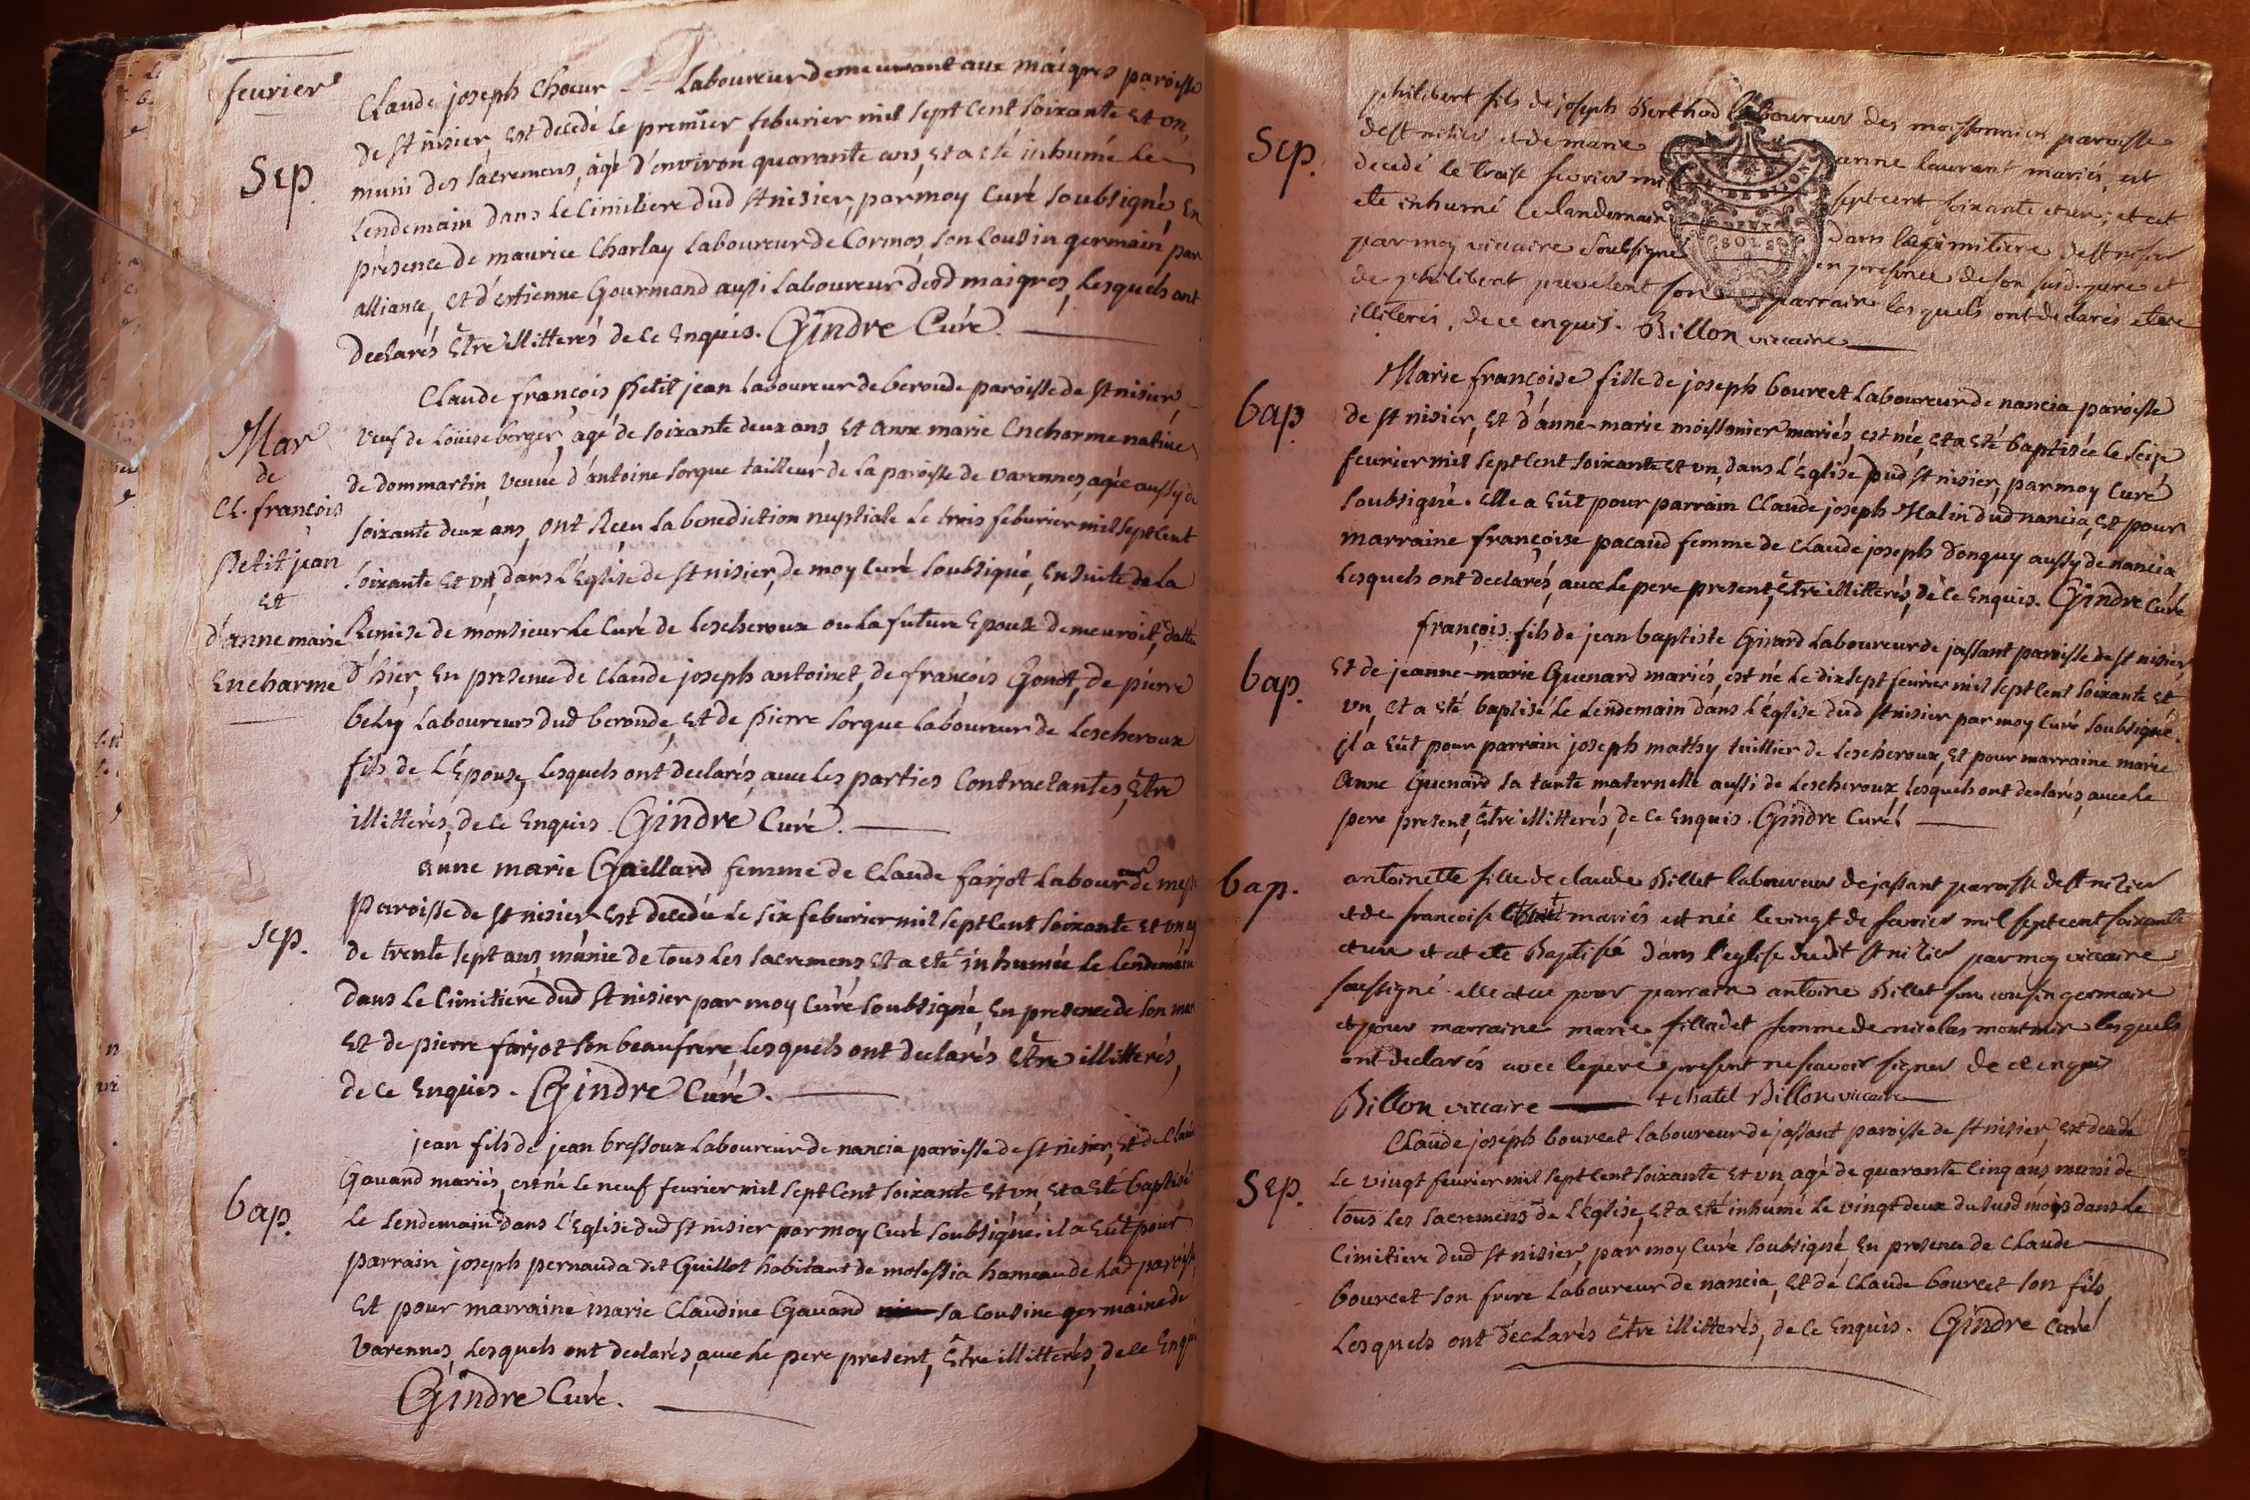 fevrier
Sep.
Claude joseph Chœur Laboureur demeurant aux maigres paroisse
de st nisier, est decedé le premier feburier mil sept cent soixante et un,
muni des sacremens, agé d'environ quarante ans, et a eté inhumé le
lendemain dans le cimitiere dud st nisier, par moy Curé soubsigné, en
presence de maurice Charlay laboureur de Cormos, son cousin germain par
alliance, et d'estienne Gourmand aussi laboureur desd maigres, lesquels ont
declarés etre illitterés de ce enquis. Gindre Curé.
Mar
de
Cl. françois
Petitjean
et
d'anne marie
Encharme
Claude françois Petit jean laboureur de beroude paroisse de st nisier,
veuf de Loüise berger, agé de soixante deux ans, et anne marie Encharme native
de dommartin, veuve d'antoine sorgue tailleur de la paroisse de varennes, agée aussy de
soixante deux ans, ont Receu la benediction nuptiale le trois feburier mil sept cent
soixante et un, dans l'Eglise de st nisier, de moy curé soubsigné, ensuite de la
Remise de monsieur le Curé de lescheroux ou la future epouse demeuroit, datte
d'hier, en presence de Claude joseph antoinet, de françois Gonot, de pierre
bely laboureurs dud beroude, et de pierre sorgue laboureur de lescheroux
fils de l'Epouse, lesquels ont declarés, avec les parties Contractantes, Etre
illitterés, de ce Enquis. Gindre Curé.
sep.
anne marie Gaillard femme de Claude farjot laboureur de
paroisse de st nisier, est decedée le six feburier mil sept cent soixante et un
de trente sept ans, munie de tous les sacremens, et a eté inhumée le lendemain
dans le cimitiere dud st nisier par moy Curé soubsigné, en presence de son
et de pierre farjot son beaufrere, lesquels ont declarés Etre illitterés,
de ce Enquis. Gindre Curé.
bap.
jean fils de jean bressoux laboureur de nancia paroisse de st nisier, et de
Gavand mariés, est né le neuf feurier mil sept cent soixante et un, et a eté baptisé
le lendemain dans l'Eglise dud st nisier par moy Curé soubsigné. il a Eüt pour
parrain joseph pernauda dit Guillot habitant de molessia hameau de lad
et pour marraine marie Claudine Gavand sa cousine germaine de
varennes, lesquels ont declarés, avec le pere present, Etre illitterés, de ce
Gindre Curé.
Sep.
philibert fils de joseph Berthod laboureur des moissonnier paroisse
de st nisier et de marie anne laurent mariés, est
decedé le troise fevrier mil septcent soixante et un; et eté
ete inhumé le landemain dans le cimitiere de st nisier
par moy viccaire soussigné en presence de son susd. pere et
de philibert son parrain lesquels ont declarés etre
illiterés, de ce enquis. Billon viccaire
SOLS
bap.
Marie françoise fille de joseph bourcet laboureur de nancia paroisse
de st nisier, et d'anne-marie moissonier mariés, est née, et a eté baptisée le seize
feurier mil sept cent soixante et un, dans l'Eglise dud st nisier, par moy Curé
soubsigné. elle a Eüt pour parrain Claude joseph Malin dud nancia, et pour
marraine françoise pacaud femme de Claude joseph donguy aussy de nancia,
lesquels ont declarés, avec le pere present, Etre illitterés, de ce Enquis. Gindre Curé
bap.
françois fils de jean baptiste Girard laboureur de jassant paroisse de st nisier,
et de jeanne-marie Guenard mariés, est né le dix sept feurier mil sept cent soixante et
un, et a eté baptisé le lendemain dans l'Eglise dud st nisier par moy Curé soubsigné.
il a Eüt pour parrain joseph mathy tuillier de lescheroux, et pour marraine marie
Anne Guenard sa tante maternelle aussi de lescheroux, lesquels ont declarés, avec le
pere present, Etre illitterés, de ce Enquis. Gindre Curé.
bap.
antoinette fille de claude Billet laboureur de jassant paroisse de st nizier
et de francoise + mariés est née le vingt de fevrier mil septcent soixante
et un et at ete Baptisée dans l'eglise dudit st nizier par moy viccaire
soussigné. elle at eu pour parrain antoine Billet son cousin germain
et pour marraine marie filladet femme de nicolas lesquels
ont declarés avec le pere present ne scavoir signer de ce enquis
Billon viccaire + chatel Billon viccaire
Sep.
Claude joseph bourcet laboureur de jassant paroisse de st nisier, est decedé
le vingt feurier mil sept cent soixante et un, agé de quarante cinq ans, muni de
tous les sacremens de l'Eglise, et a eté inhumé le vingt deux du susd mois dans le
Cimitiere dud st nisier, par moy Curé soubsigné, en presence de Claude
bourcet son frere laboureur de nancia, et de Claude bourcet son fils,
lesquels ont declarés Etre illitterés, de ce Enquis. Gindre Curé